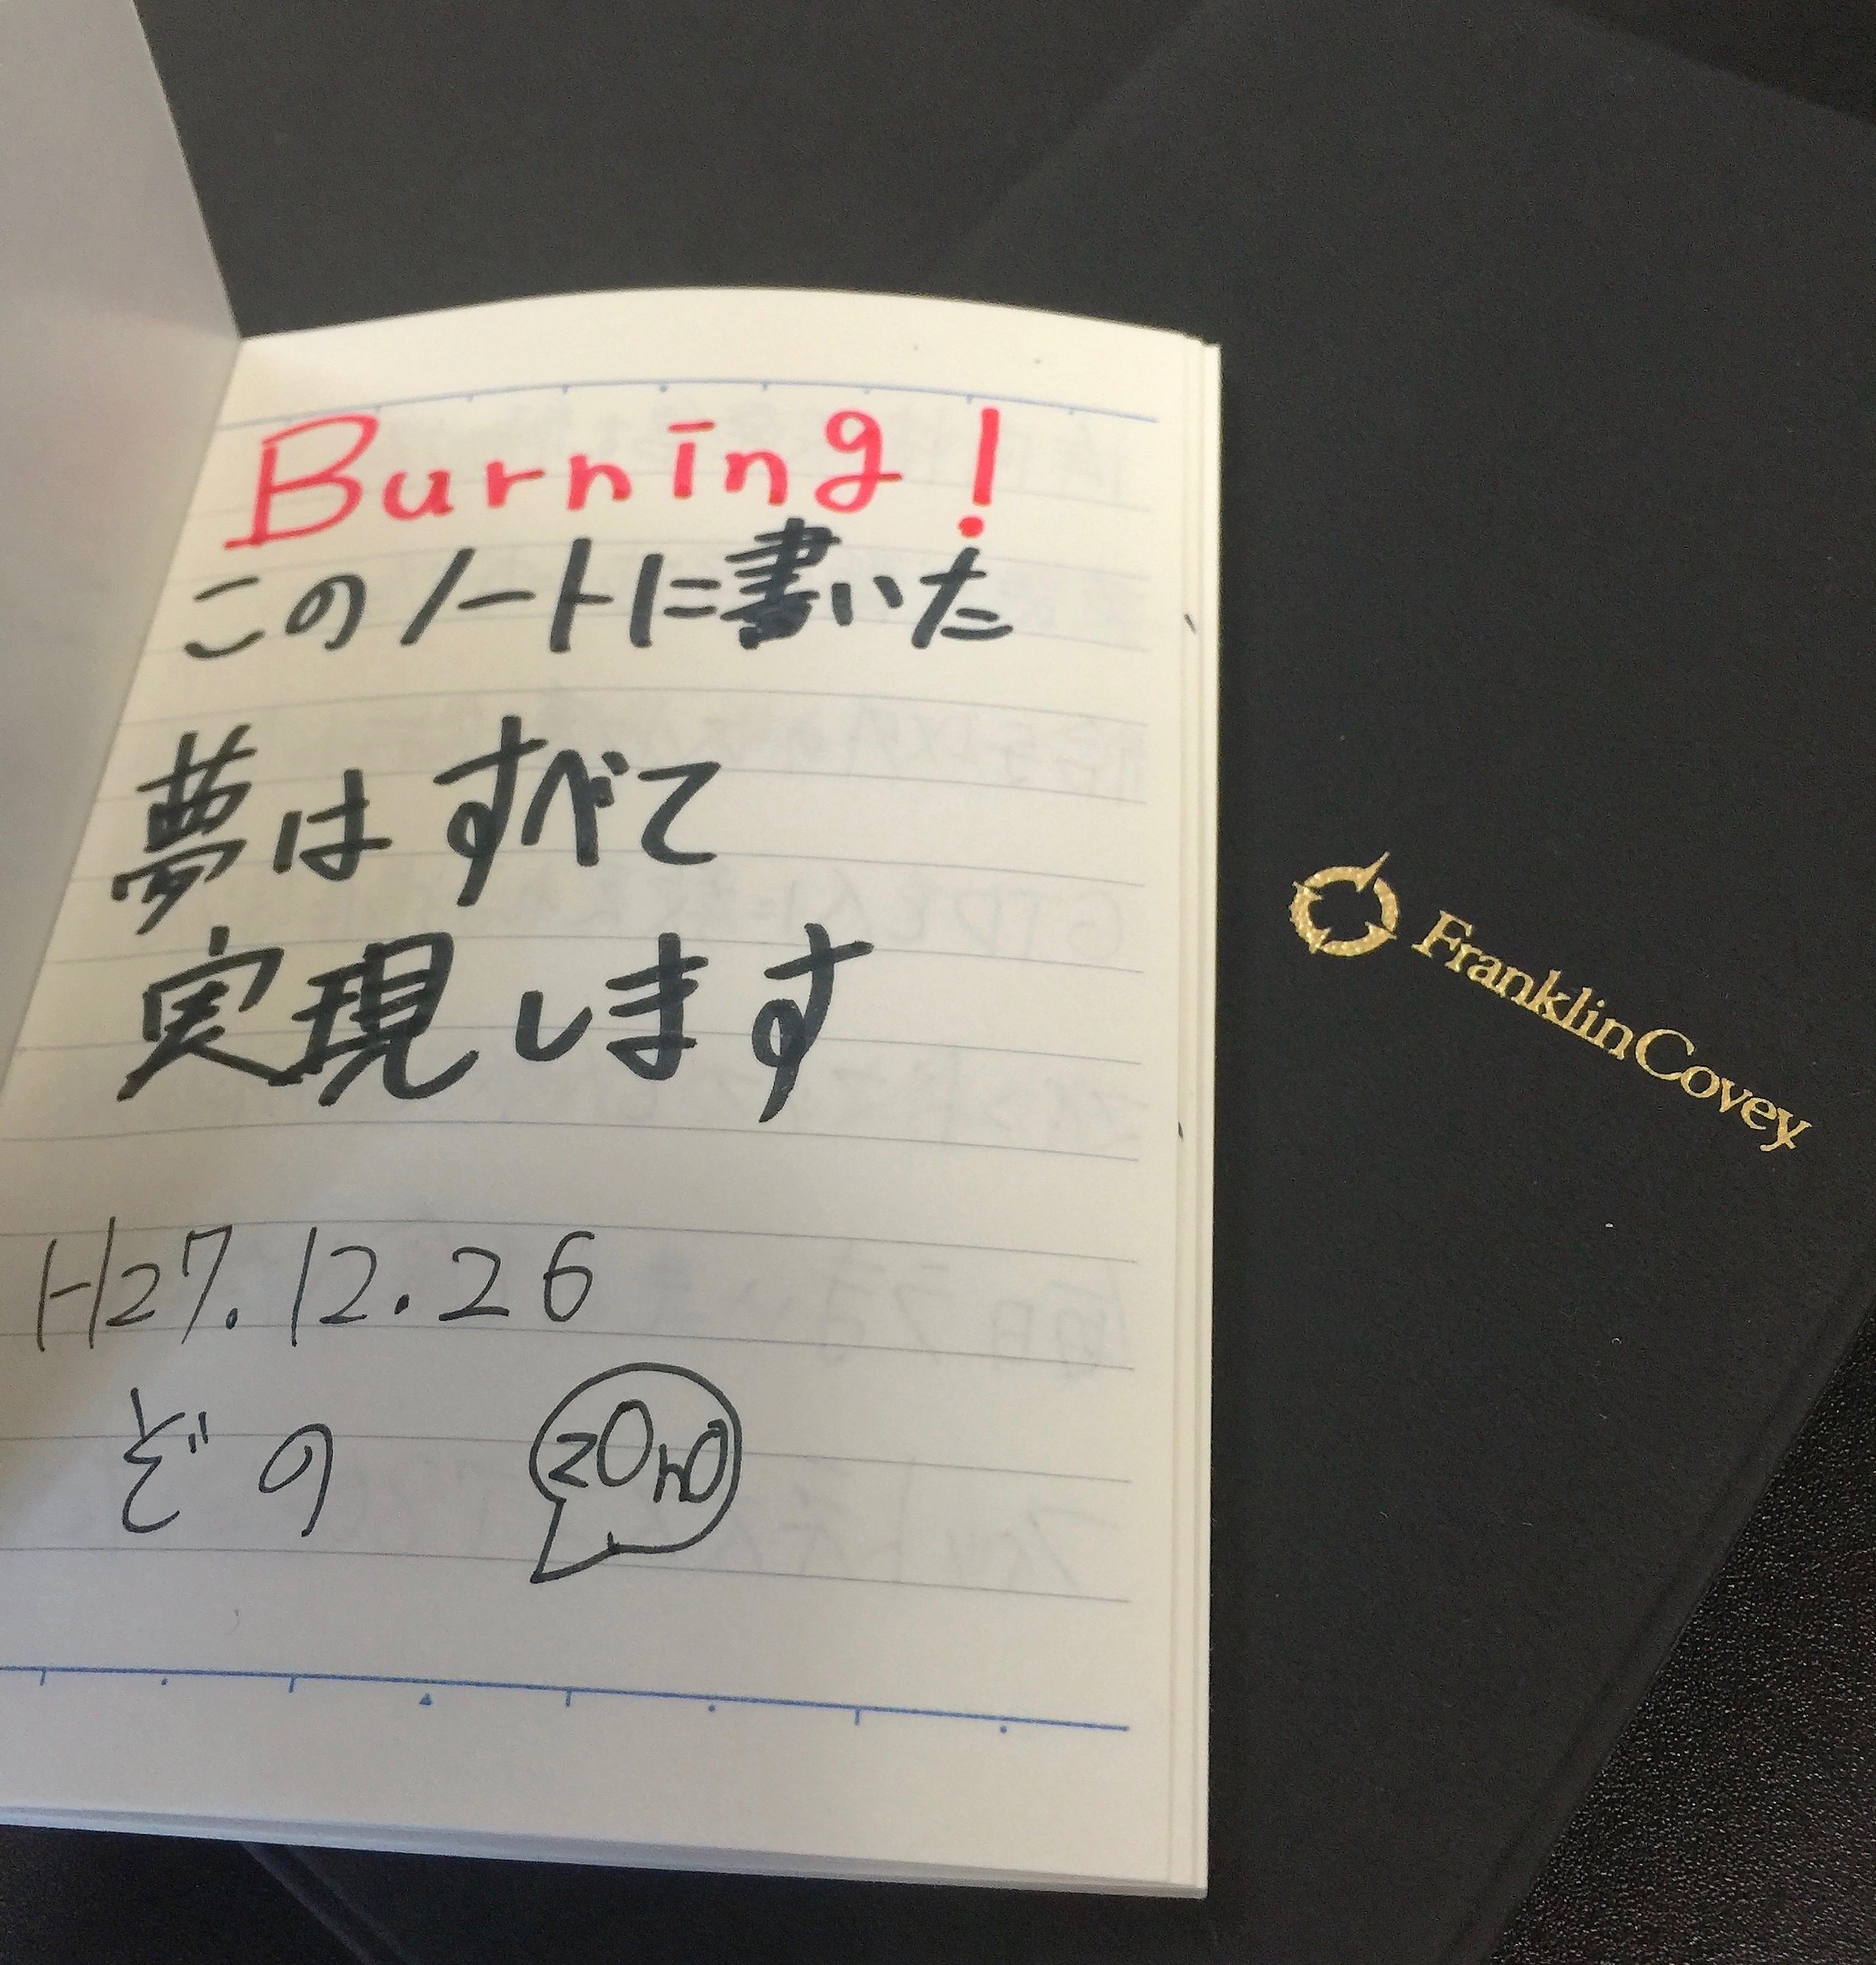 Burning!
このノートに書いた
夢はすべて
実現します
H27.12.26
ぞの
zOnO
FranklinCovey